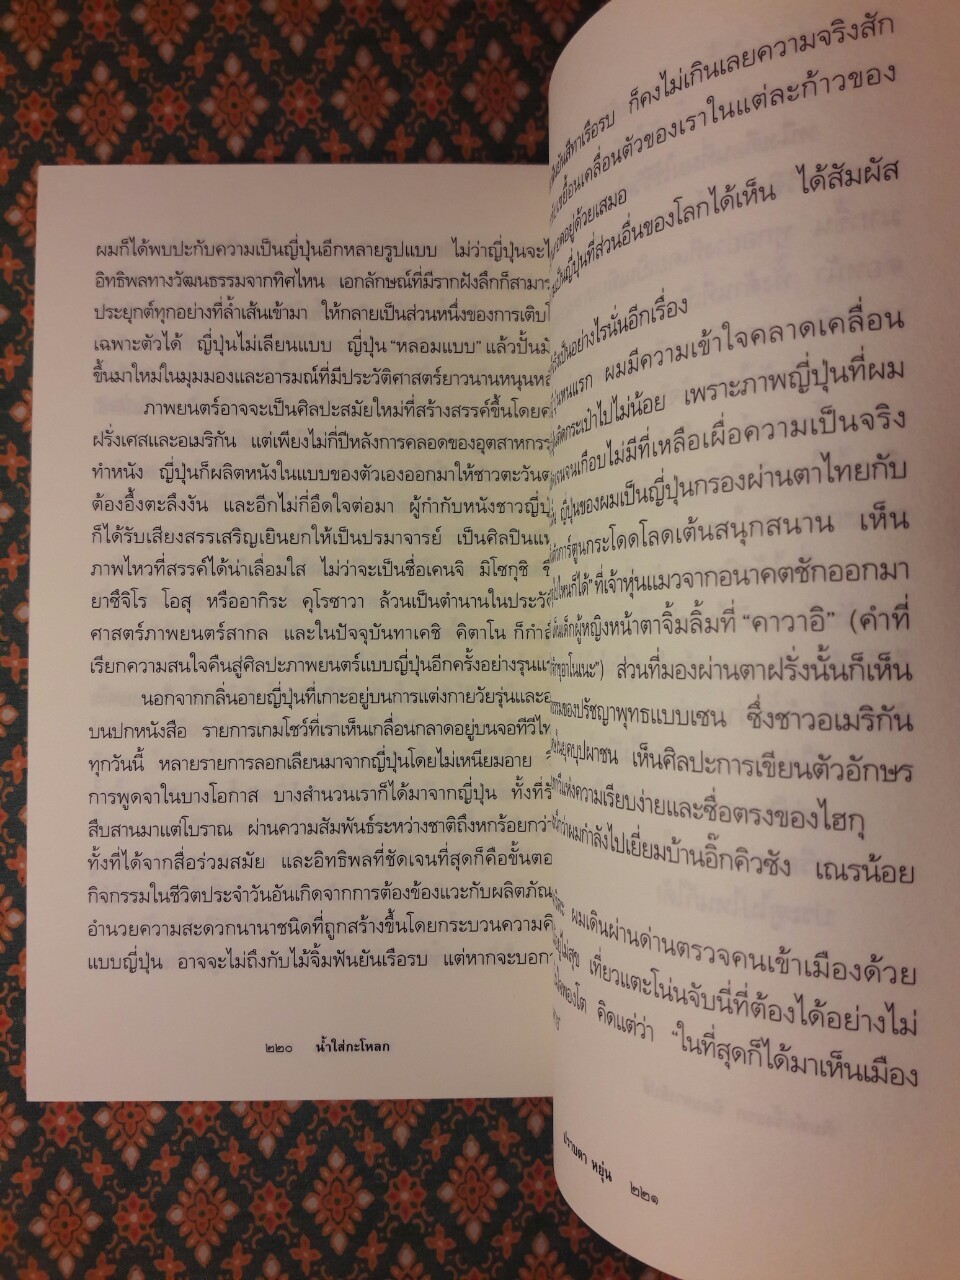 ผมก็ได้พบปะกับความเป็นญี่ปุ่นอีกหลายรูปแบบ ไม่ว่าญี่ปุ่นจะ
อิทธิพลทางวัฒนธรรมจากทิศไหน เอกลักษณ์ที่มีรากฝังลึกก็สามาร
ประยุกต์ทุกอย่างที่ล้ำเส้นเข้ามา ให้กลายเป็นส่วนหนึ่งของการเติบ
เฉพาะตัวได้ ญี่ปุ่นไม่เลียนแบบ ญี่ปุ่น “หลอมแบบ” แล้วปั้น
ขึ้นมาใหม่ในมุมมองและอารมณ์ที่มีประวัติศาสตร์ยาวนานหนุน
ภาพยนตร์อาจจะเป็นศิลปะสมัยใหม่ที่สร้างสรรค์ขึ้นโดย
ฝรั่งเศสและอเมริกัน แต่เพียงไม่กี่ปีหลังการคลอดของอุตสาหกร
ทำหนัง ญี่ปุ่นก็ผลิตหนังในแบบของตัวเองออกมาให้ชาวตะวัน
ต้องอึ้งตะลึงงัน และอีกไม่กี่อึดใจต่อมา ผู้กำกับหนังชาวญี่ปุ่
ก็ได้รับเสียงสรรเสริญเยินยกให้เป็นปรมาจารย์ เป็นศิลปิน
ภาพไหวที่สรรค์ได้น่าเลื่อมใส ไม่ว่าจะเป็นชื่อเคนจิ มิโซกุชิ
ยาซึจิโร โอสุ หรืออากิระ คุโรซาวา ล้วนเป็นตำนานในประวั
ศาสตร์ภาพยนตร์สากล และในปัจจุบันทาเคชิ คิตาโน ก็กำ
เรียกความสนใจคืนสู่ศิลปะภาพยนตร์แบบญี่ปุ่นอีกครั้งอย่างรุน
นอกจากกลิ่นอายญี่ปุ่นที่เกาะอยู่บนการแต่งกายวัยรุ่นและ
บนปกหนังสือ รายการเกมโชว์ที่เราเห็นเกลื่อนกลาดอยู่บนจอทีวี
ทุกวันนี้ หลายรายการลอกเลียนมาจากญี่ปุ่นโดยไม่เหนียมอาย
การพูดจาในบางโอกาส บางสำนวนเราก็ได้มาจากญี่ปุ่น ทั้งที่
สืบสานมาแต่โบราณ ผ่านความสัมพันธ์ระหว่างชาติถึงหกร้อยกว่า
ทั้งที่ได้จากสื่อร่วมสมัย และอิทธิพลที่ชัดเจนที่สุดก็คือขั้นตอ
กิจกรรมในชีวิตประจำวันอันเกิดจากการต้องข้องแวะกับผลิตภัณ
อำนวยความสะดวกนานาชนิดที่ถูกสร้างขึ้นโดยกระบวนความ
แบบญี่ปุ่น อาจจะไม่ถึงกับไม้จิ้มฟันยันเรือรบ แต่หากจะบอก
๒๒๐ น้ำใส่กะโหลก
ยันสีทาเรือรบ ก็คงไม่เกินเลยความจริงสัก
เขยื้อนเคลื่อนตัวของเราในแต่ละก้าวของ
อยู่ด้วยเสมอ
เป็นญี่ปุ่นที่ส่วนอื่นของโลกได้เห็น ได้สัมผัส
เป็นอย่างไรนั่นอีกเรื่อง
แรก ผมมีความเข้าใจคลาดเคลื่อน
กระเป๋าไปไม่น้อย เพราะภาพญี่ปุ่นที่ผม
จนเกือบไม่มีที่เหลือเผื่อความเป็นจริง
ญี่ปุ่นของผมเป็นญี่ปุ่นกรองผ่านตาไทยกับ
การ์ตูนกระโดดโลดเต้นสนุกสนาน เห็น
ไหนก็ได้” ที่เจ้าหุ่นแมวจากอนาคตชักออกมา
เด็กผู้หญิงหน้าตาจิ้มลิ้มที่ “คาวาอิ” (คำที่
ส่วนที่มองผ่านตาฝรั่งนั้นก็เห็น
ของปรัชญาพุทธแบบเซน ซึ่งชาวอเมริกัน
ยุคบุปผาชน เห็นศิลปะการเขียนตัวอักษร
แห่งความเรียบง่ายและซื่อตรงของไฮกุ
ว่าผมกำลังไปเยี่ยมบ้านอิ๊กคิวซัง เณรน้อย
ผมเดินผ่านด่านตรวจคนเข้าเมืองด้วย
ไม่สุข เที่ยวแตะโน่นจับนี่ที่ต้องได้อย่างไม่
พองโต คิดแต่ว่า “ในที่สุดก็ได้มาเห็นเมือง
ปราบดา หยุ่น ๒๒๑